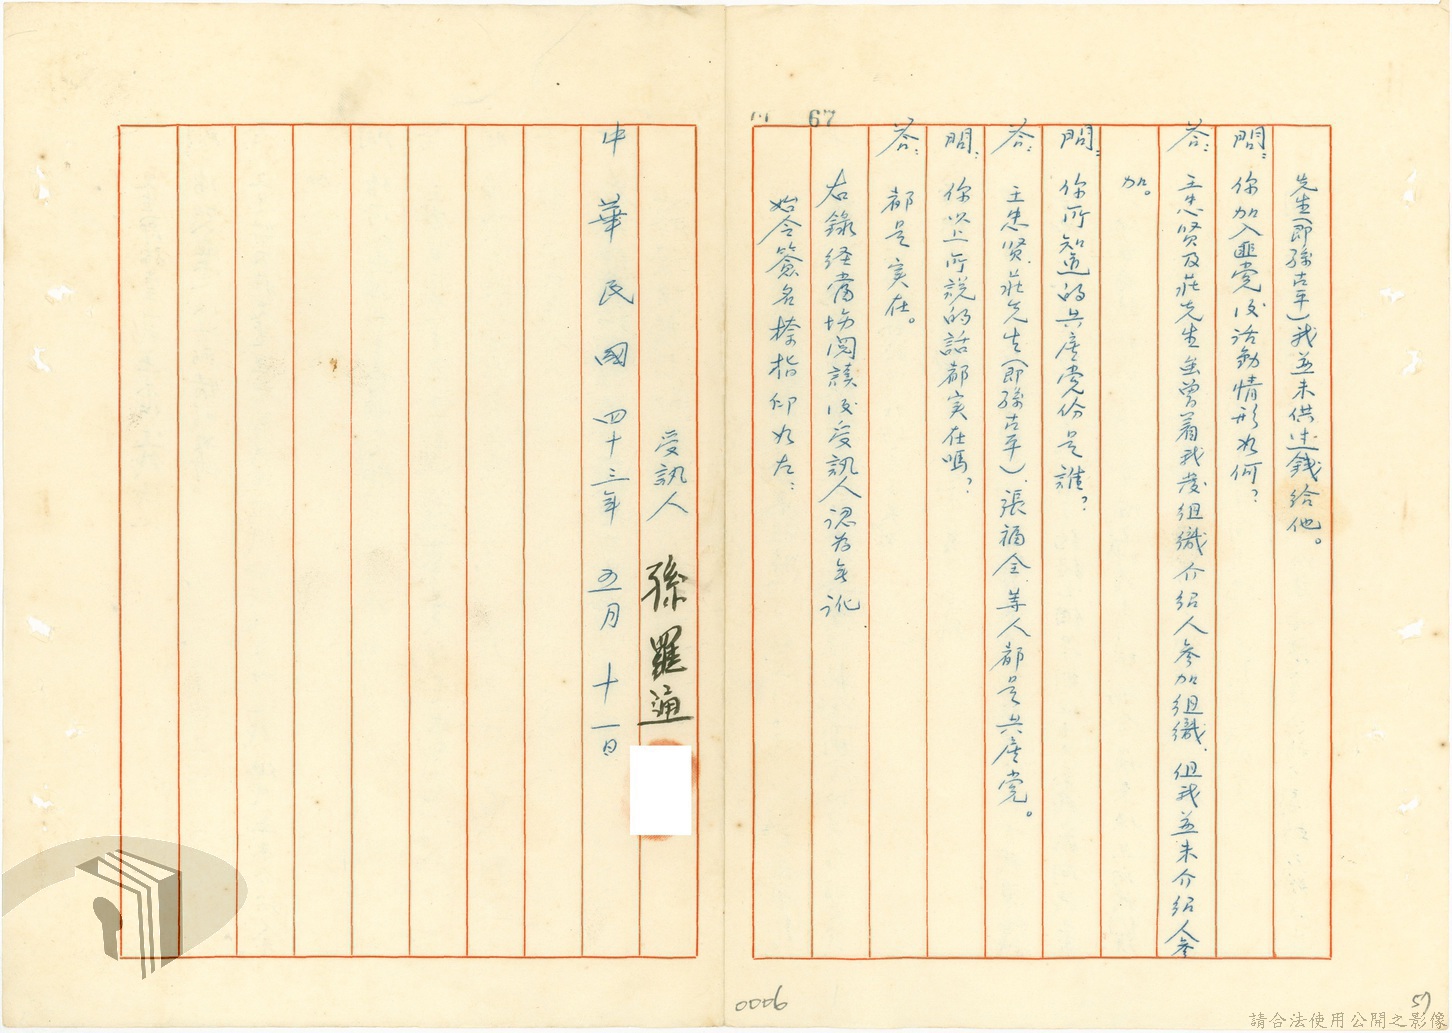 67
先生(即孫古平)我並未供述錢給他。
問：你加入匪党後活動情形如何？
答：王忠贤及莊先生虽曾着我發組織介紹人參加組織、但我並未介紹人參
加。
問：你所知道的共產党份是誰？
答：王忠贤、莊先生(即孫古平)、張福全、等人都是共產党。
問：你以上所說的話都实在嗎？
答：都是实在。
右錄経當場閱讀後受訊人認为無訛
始令簽名捺指印如左：
受訊人 孫羅通
中華民國四十三年五月十一日
0006
57
請合法使用公開之影像